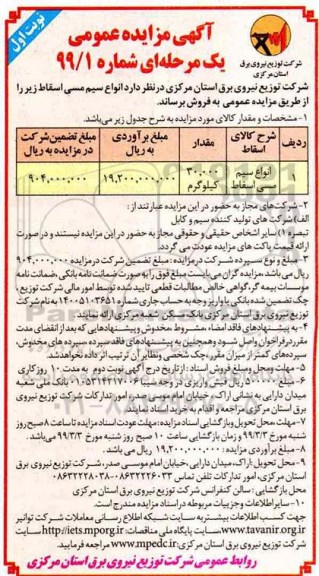 نوبت اول
آگهی مزایده عمومی
یک مرحله‌ای شماره ۹۹/۱
شرکت توزیع نیروی برق
استان مرکزی
شرکت توزیع نیروی برق استان مرکزی در نظر دارد انواع سیم مسی اسقاط زیر را
از طریق مزایده عمومی به فروش برساند.
۱- مشخصات و مقدار کالای مورد مزایده به شرح جدول زیر می‌باشد.
ردیف | شرح کالای اسقاط | مقدار | مبلغ برآوردی به ریال | مبلغ تضمین شرکت در مزایده به ریال
۱ | انواع سیم مسی اسقاط | ۳۰,۰۰۰ کیلوگرم | ۱۹,۲۰۰,۰۰۰,۰۰۰ | ۹۰۴,۰۰۰,۰۰۰
۲- شرکت‌های مجاز به حضور در این مزایده عبارتند از:
الف) شرکت های تولید کننده سیم و کابل
تبصره ۱) سایر اشخاص حقیقی و حقوقی مجاز به حضور در این مزایده نیستند و در صورت
ارائه قیمت پاکت های مزایده عودت می گردد.
۳- مبلغ و نوع سپرده شرکت در مزایده: مبلغ تضمین شرکت در مزایده ۹۰۴,۰۰۰,۰۰۰
ریال می‌باشد، مزایده گران می‌بایست مبلغ فوق را به صورت ضمانت نامه بانکی، ضمانت نامه
موسسات بیمه گر، گواهی خالص مطالبات قطعی تایید شده توسط امور مالی شرکت توزیع،
چک تضمین شده بانکی یا واریز وجه به حساب جاری شماره ۱۴۰۰۵۱۰۳۶۵۱ به نام شرکت
توزیع نیروی برق استان مرکزی بانک مسکن شعبه مرکزی ارائه نمایند.
۴- به پیشنهادهای فاقد امضاء، مشروط، مخدوش و پیشنهادهایی که بعد از انقضای مدت
مقرر در فراخوان واصل شود و همچنین به پیشنهادهای فاقد سپرده، سپرده های مخدوش،
سپرده‌های کمتر از میزان مقرر، چک شخصی و نظایر آن ترتیب اثر داده نخواهد شد.
۵- مهلت و محل و مبلغ فروش اسناد: از تاریخ درج آگهی نوبت دوم به مدت ۱۰ روز کاری
۶- مبلغ ۵۰۰,۰۰۰ ریال فیش واریزی در وجه سیبا ۰۱۰۵۳۱۴۲۱۷۰۰۶ بانک ملی شعبه
میدان دارایی به نشانی اراک، خیابان امام موسی صدر، امور تدارکات شرکت توزیع نیروی
برق استان مرکزی مراجعه و اقدام به خرید اسناد نمایند.
۷- مهلت، محل تحویل و بازگشایی اسناد مزایده: مهلت عودت اسناد مزایده تا ساعت ۸ صبح روز
شنبه مورخ ۹۹/۳/۳ و زمان بازگشایی ساعت ۱۰ صبح روز شنبه مورخ ۹۹/۳/۳ می‌باشد.
۸- مبلغ برآوردی مزایده: ۱۹,۲۰۰,۰۰۰,۰۰۰ ریال می باشد.
۹- محل تحویل: اراک، میدان دارایی، خیابان امام موسی صدر، شرکت توزیع نیروی برق
استان مرکزی، امور تدارکات تلفن تماس ۰۸۶۳۲۲۲۶۰۳۳-۰۸۶۳۲۲۲۸۰۳۸
محل بازگشایی: سالن کنفرانس شرکت توزیع نیروی برق استان مرکزی
۱۰- سایر اطلاعات و جزییات مربوطه در اسناد مزایده مندرج است.
جهت کسب اطلاعات بیشتر به سایت شبکه اطلاع رسانی معاملات شرکت توانیر
www.tavanir.org.ir سایت پایگاه ملی مناقصات: http://iets.mporg.ir سایت
شرکت توزیع نیروی برق استان مرکزی www.mpedc.ir مراجعه فرمایید.
روابط عمومی شرکت توزیع نیروی برق استان مرکزی